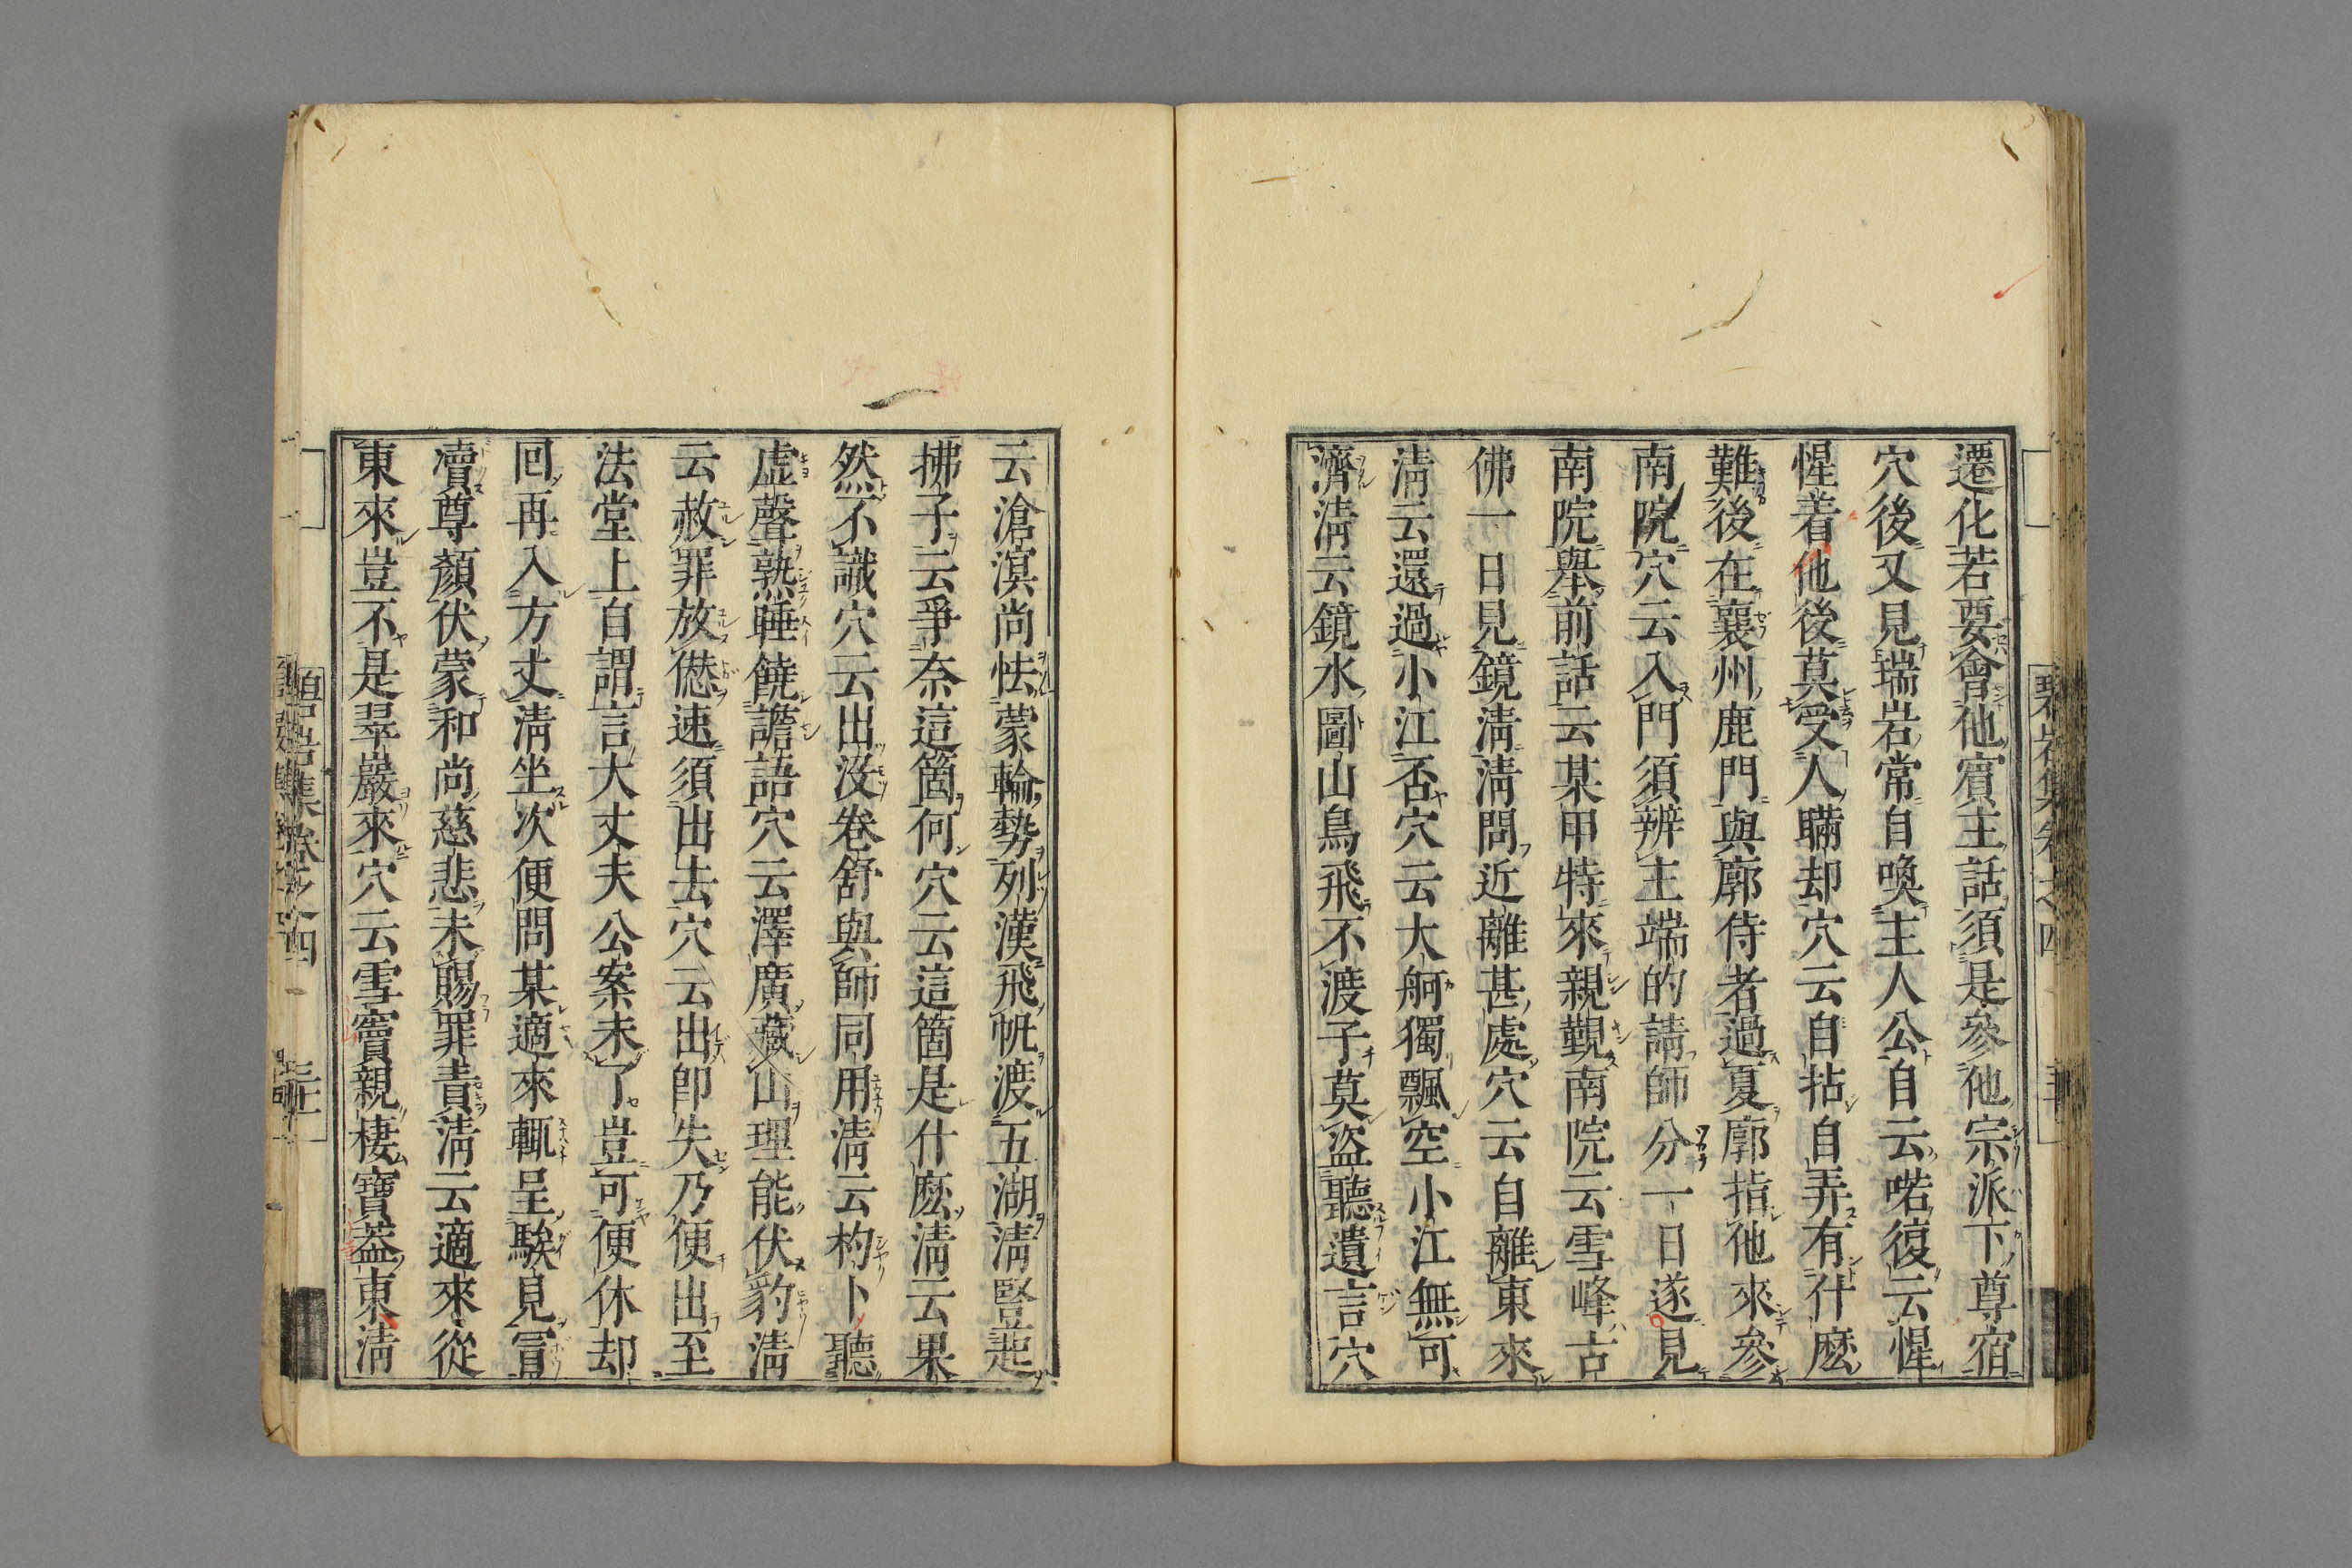 遷化若要會他賓主話須是參他宗派下尊宿
穴後又見瑞岩常自喚主人公自云喏復云惺
惺着他後莫受人瞞却穴云自拈自弄有什麼
難後在襄州鹿門與廓侍者過夏廓指他來參
南院穴云入門須辨主端的請師分一日遂見
南院舉前話云某甲特來親覲南院云雪峰古
佛一日見鏡淸淸問近離甚處穴云自離東來
淸云還過小江否穴云大舸獨飄空小江無可
濟淸云鏡水圖山鳥飛不渡子莫盜聽遺言穴
云滄溟尚怯蒙輪勢列漢飛帆渡五湖淸豎起
拂子云爭奈這箇何穴云這箇是什麼淸云果
然不識穴云出沒卷舒與師同用淸云杓卜聽
虛聲熟睡饒譫語穴云澤廣藏山理能伏豹淸
云赦罪放愆速須出去穴云出卽失乃便出至
法堂上自謂言大丈夫公案未了豈可便休却
回再入方丈淸坐次便問某適來輒呈騃見冐
瀆尊顏伏蒙和尚慈悲未賜罪責淸云適來從
東來豈不是翠巖來穴云雪竇親棲寶蓋東淸
碧岩集卷之四